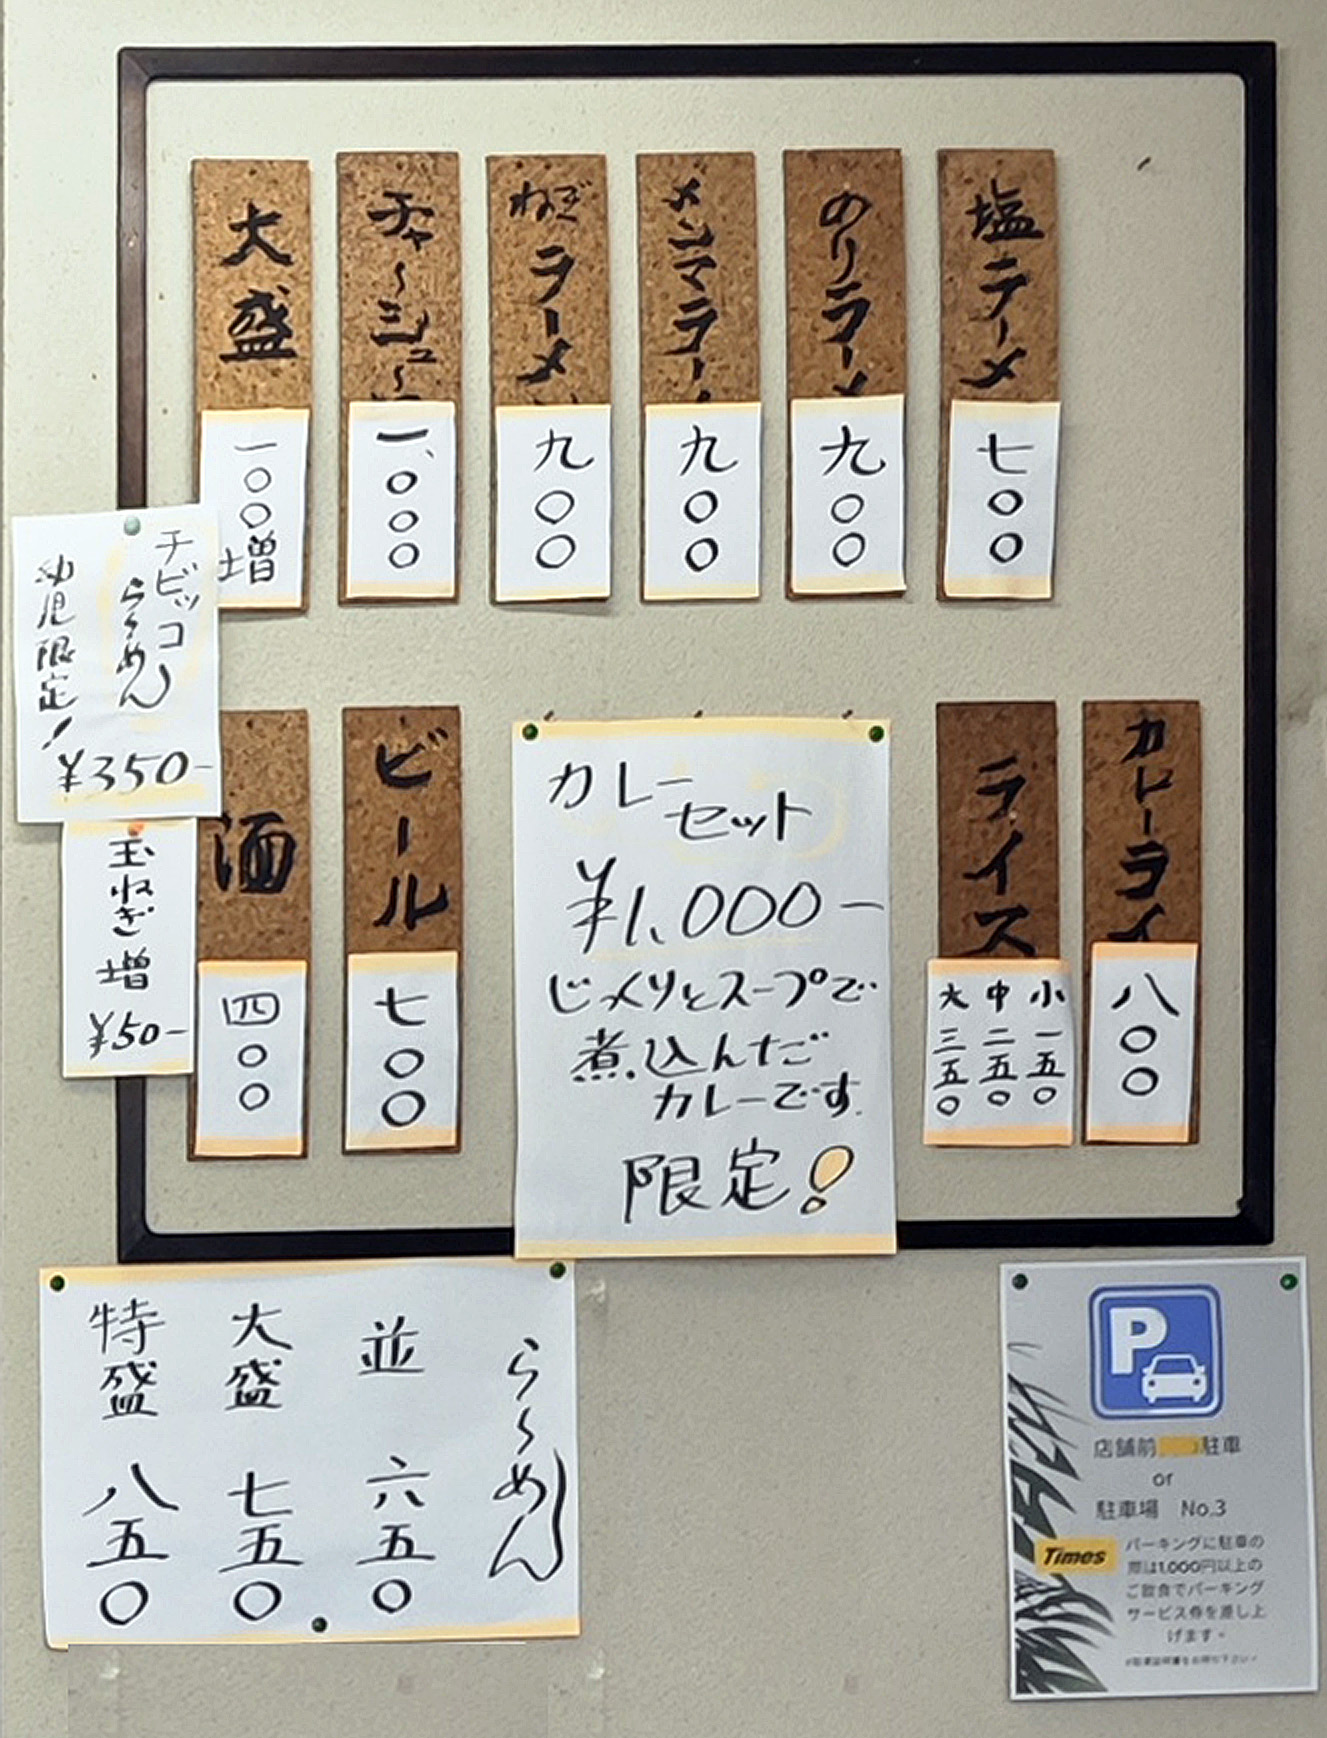 塩ラーメ
七〇〇
のりラーメ
九〇〇
メンマラー
九〇〇
ねぎラーメ
九〇〇
チャ〜シュ〜
一、〇〇〇
大盛
一〇〇増
チビッコ
ら〜めん
幼児限定!
¥350-
玉ねぎ増
¥50-
カレーライ
八〇〇
ライス
小一五〇
中二五〇
大三五〇
カレー
セット
¥1,000-
じっくりとスープで
煮込んだ
カレーです.
限定!
ビール
七〇〇
酒
四〇〇
ら〜めん
並 六五〇
大盛 七五〇
特盛 八五〇
P
店舗前 駐車
or
駐車場 No.3
Times
パーキングに駐車の
際は1,000円以上の
ご飲食でパーキング
サービス券を差し上
げます。